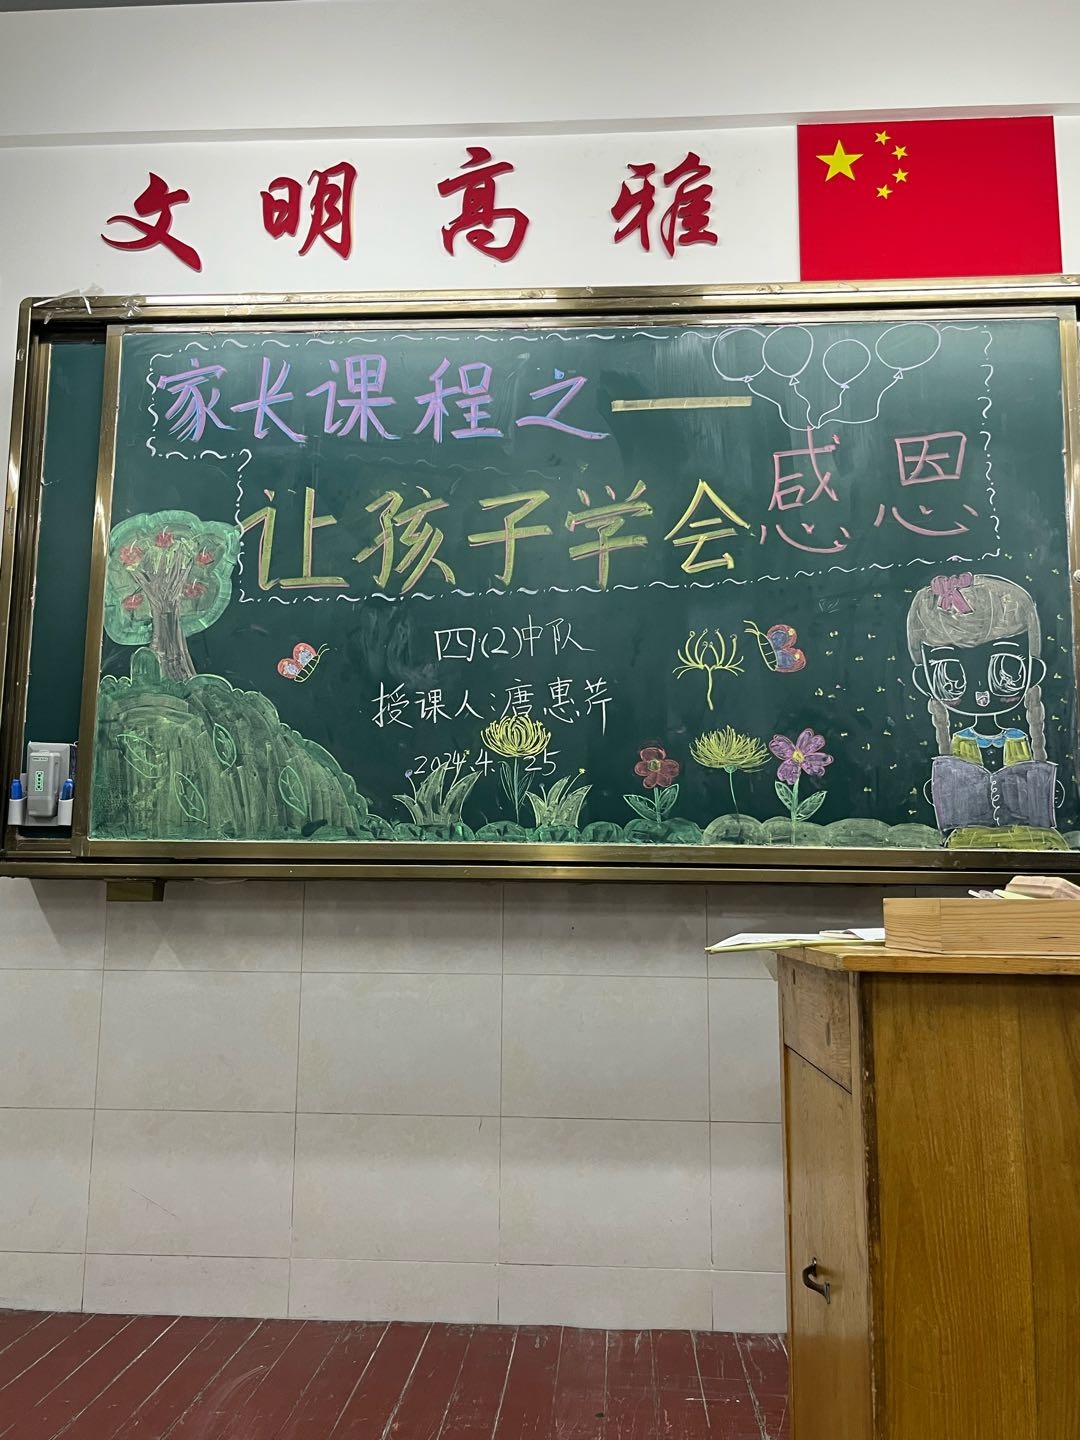 文明高雅
家长课程之——
让孩子学会感恩
四(2)中队
授课人:唐惠芹
2024.4.25